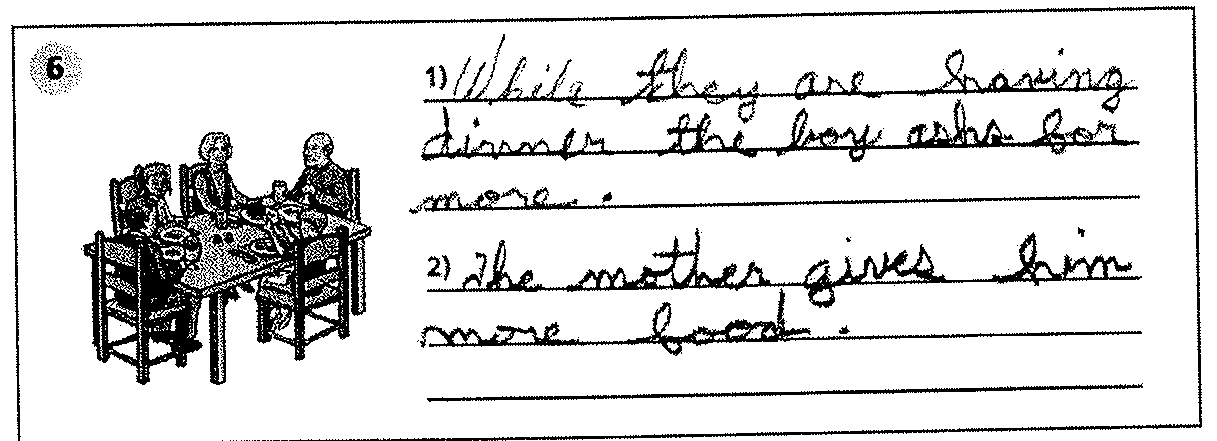 6
1) While they are having
dinner the boy asks for
more.
2) The mother gives him
more food.